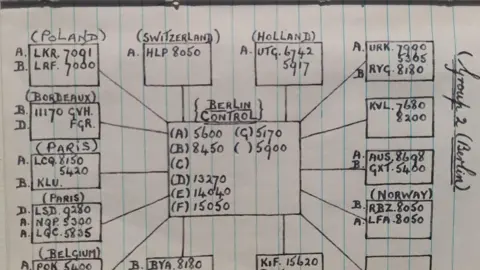 (POLAND)
A. LKR. 7091
B. LRF. 7060
(SWITZERLAND)
A. HLP 8050
(HOLLAND)
A. UTG. 6742
5917
A. URK. 7990
5365
B. RYG. 8180
(BORDEAUX)
B. 11170 GVH.
D. FGR.
{BERLIN
CONTROL}
(A) 5600 (G) 5170
(B) 8450 ( ) 5900
(C)
(D) 13270
(E) 14040
(F) 15050
KVL. 7680
8200
(PARIS)
A. LCQ. 8150
5420
B. KLU.
A. AUS. 8698
B. GXT. 5400
(PARIS)
D. LSD. 9280
A. NQP. 5300
A. LQC. 5835
(NORWAY)
B. RBZ. 8050
A. LFA. 8050
(BELGIUM)
A. POK. 5400
B. BYA. 8180
KIF. 15620
(Group 2 (Berlin)